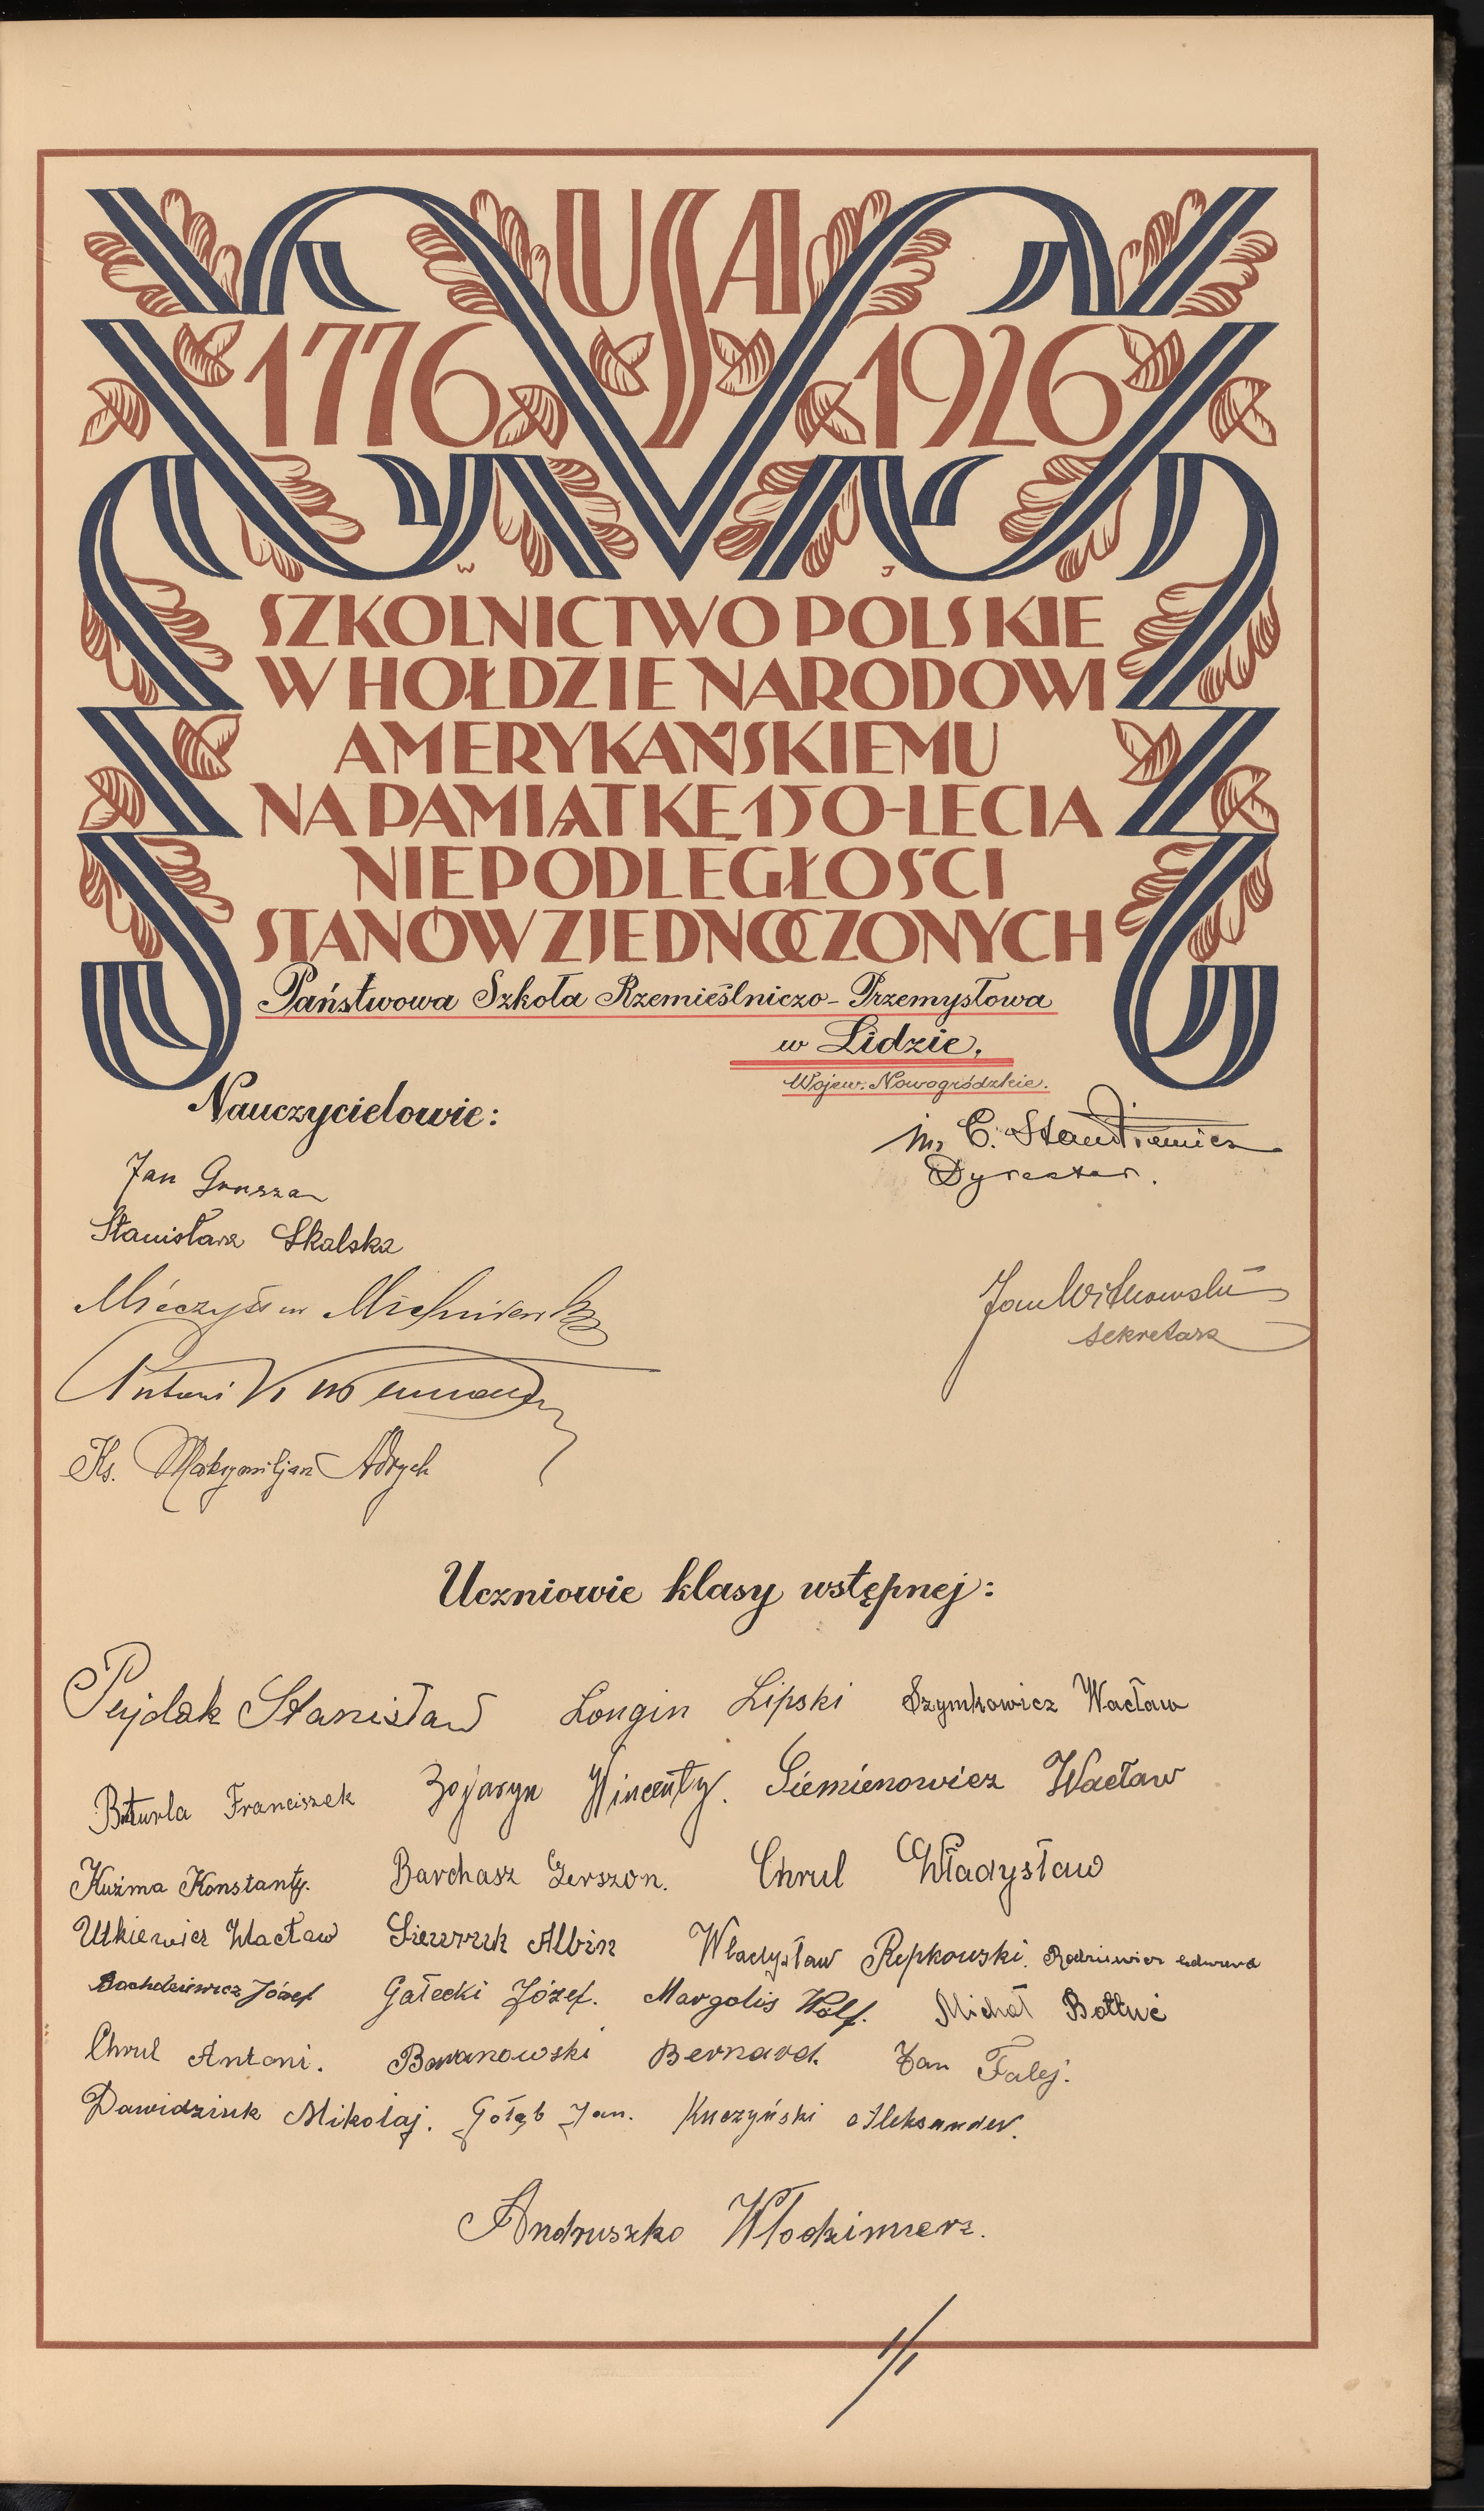 USA
1776 1926
W J
SZKOLNICTWO POLSKIE
W HOŁDZIE NARODOWI
AMERYKAŃSKIEMU
NA PAMIĄTKĘ 150-LECIA
NIEPODLEGŁOŚCI
STANÓW ZJEDNOCZONYCH
Państwowa Szkoła Rzemieślniczo-Przemysłowa
w Lidzie.
Wojew. Nowogródzkie.
Nauczycielowie:
C. Stankiewicz
Dyrektor.
Jan Grusza
Stanisława Skalska
Mieczysław
Jan Witkowski
sekretarz
Antoni
Ks. Maksymiljan Adrych
Uczniowie klasy wstępnej:
Pujdak Stanisław Longin Lipski Szymkowicz Wacław
Franciszek Bojaryn Wincenty. Siemienowicz Wacław
Kuźma Konstanty. Barchasz Gerszon. Chrul Władysław
Utkiewicz Wacław Albin Władysław Repkowski.
Józef Gałecki Józef. Margolis Wolf. Michał
Chrul Antoni. Baranowski Bernard. Jan Falej.
Dawidziuk Mikołaj. Gołąb Jan. Kuczyński Aleksander.
Andruszko Włodzimierz.